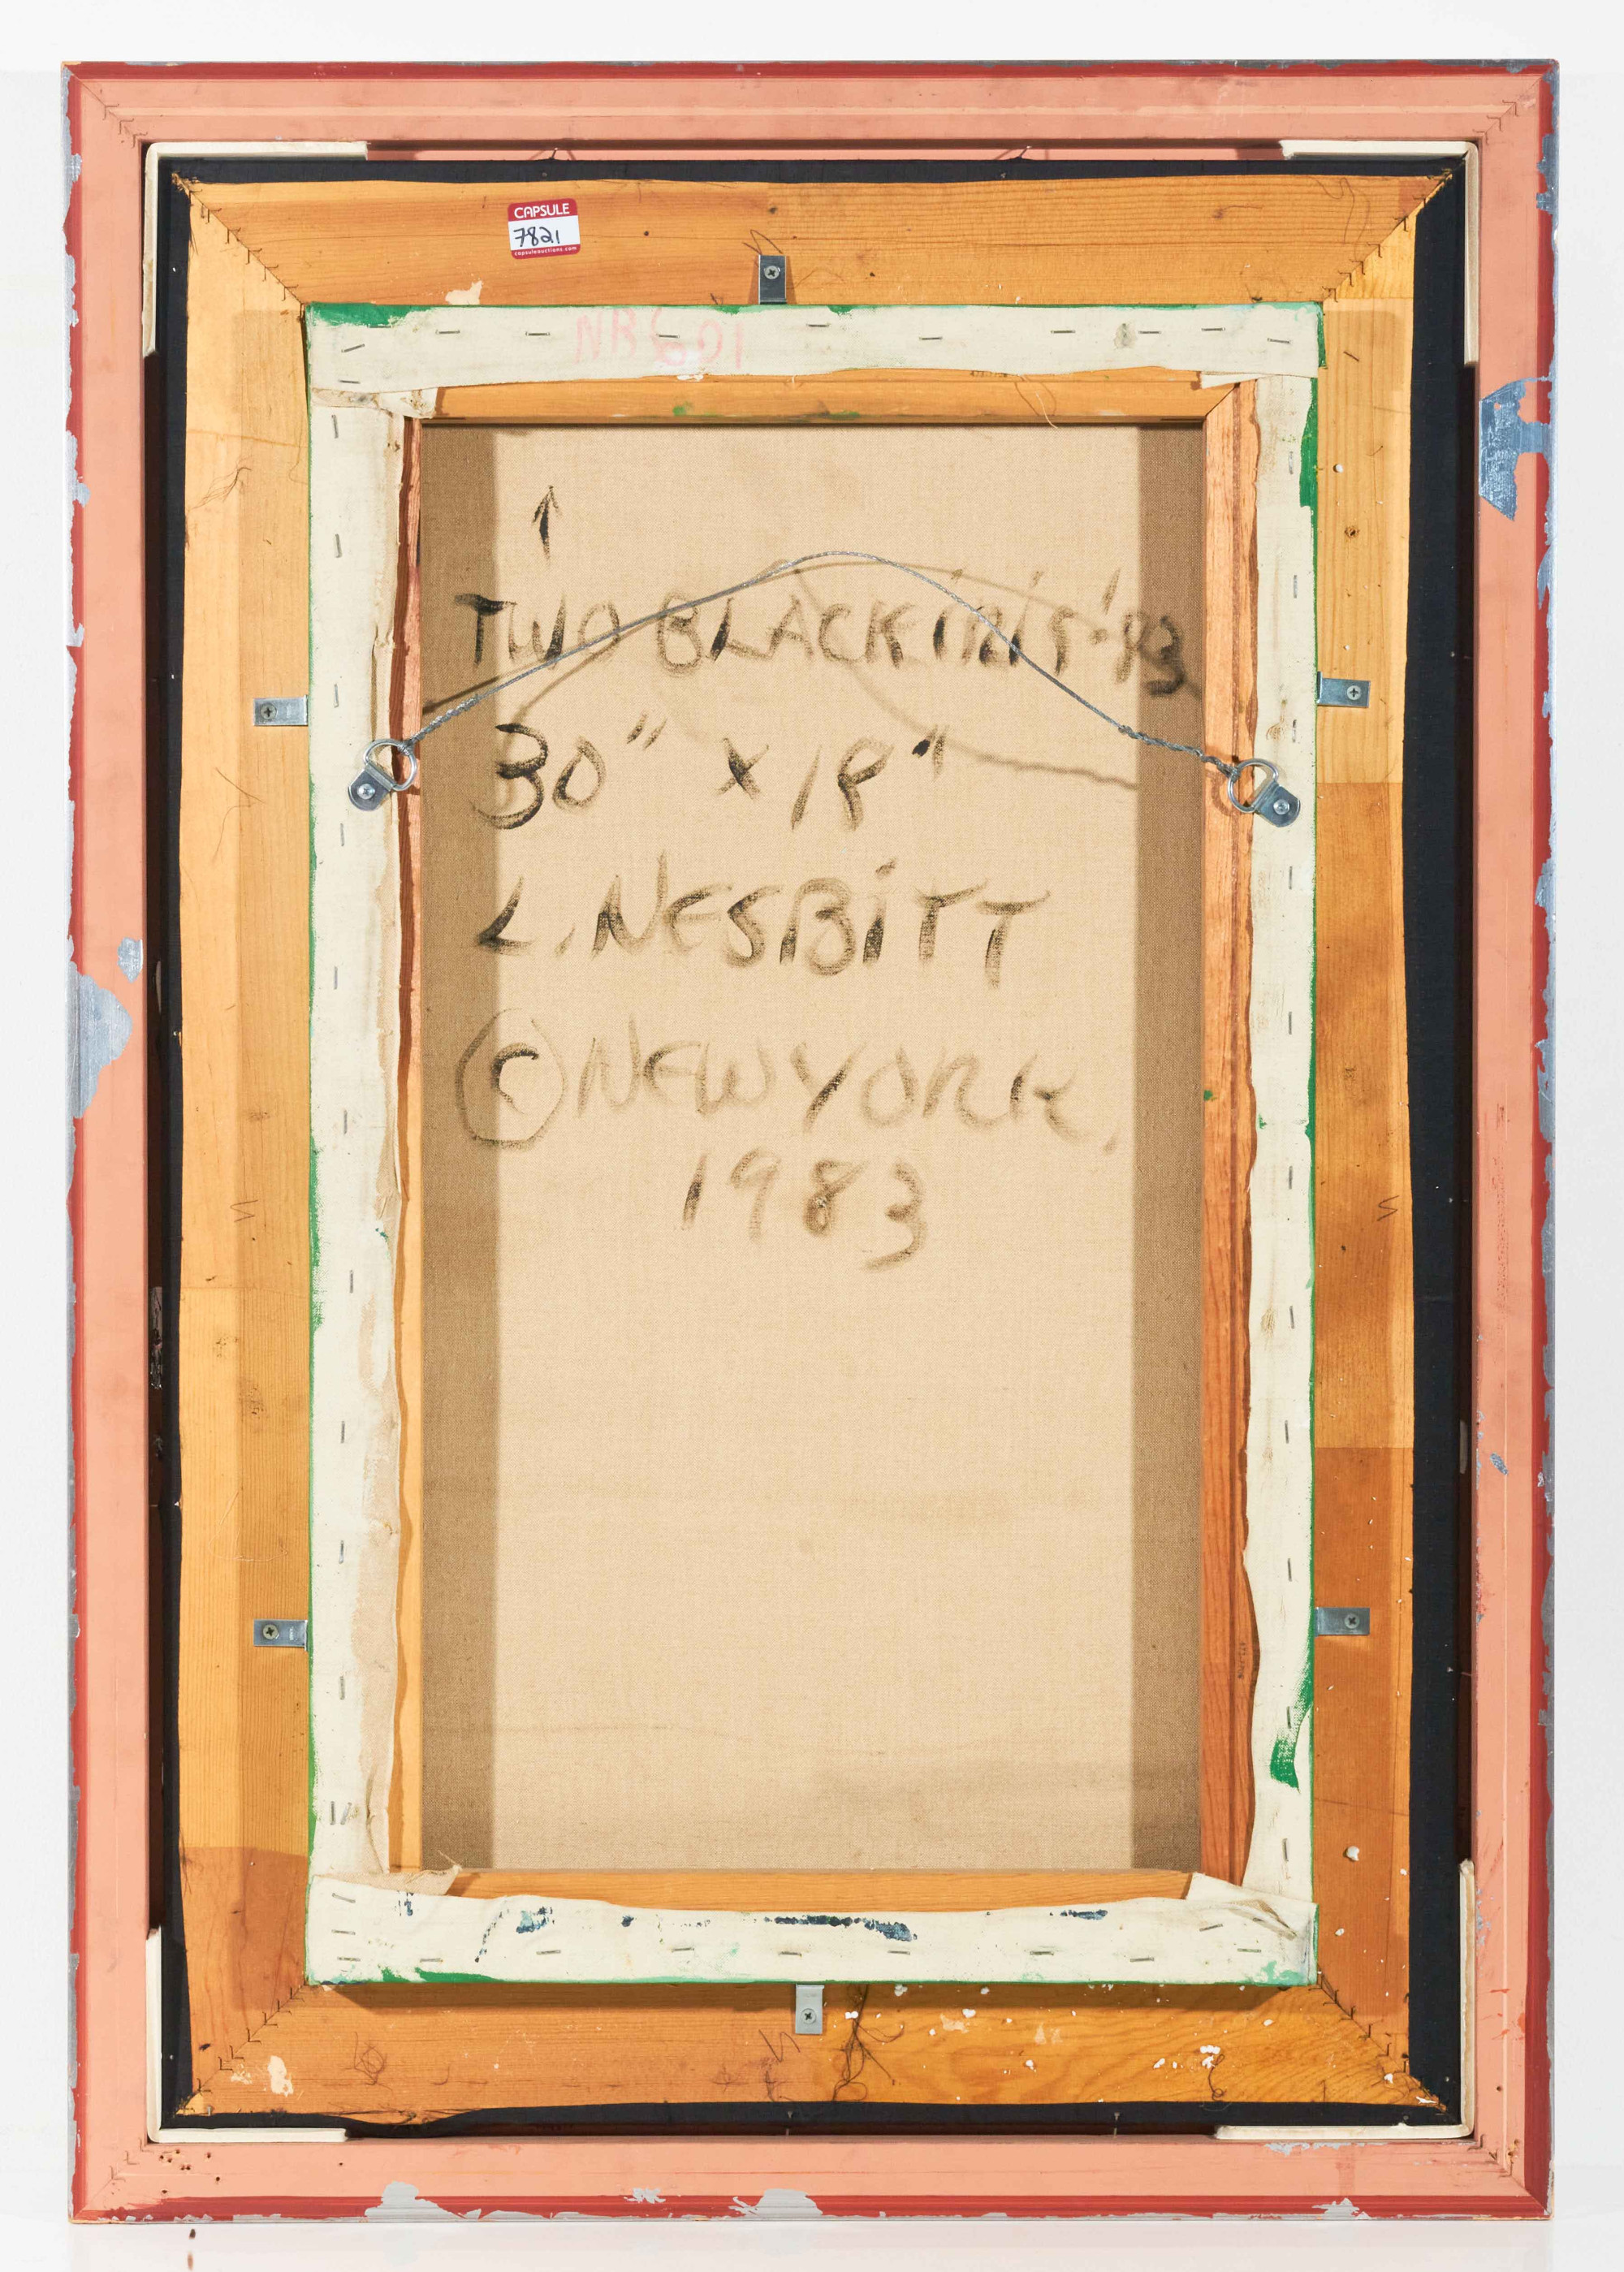 CAPSULE
7821
capsuleauctions.com
↑
TWO BLACK iRiS '83
30" x 18"
L. NESBiTT
© NEW YORK,
1983